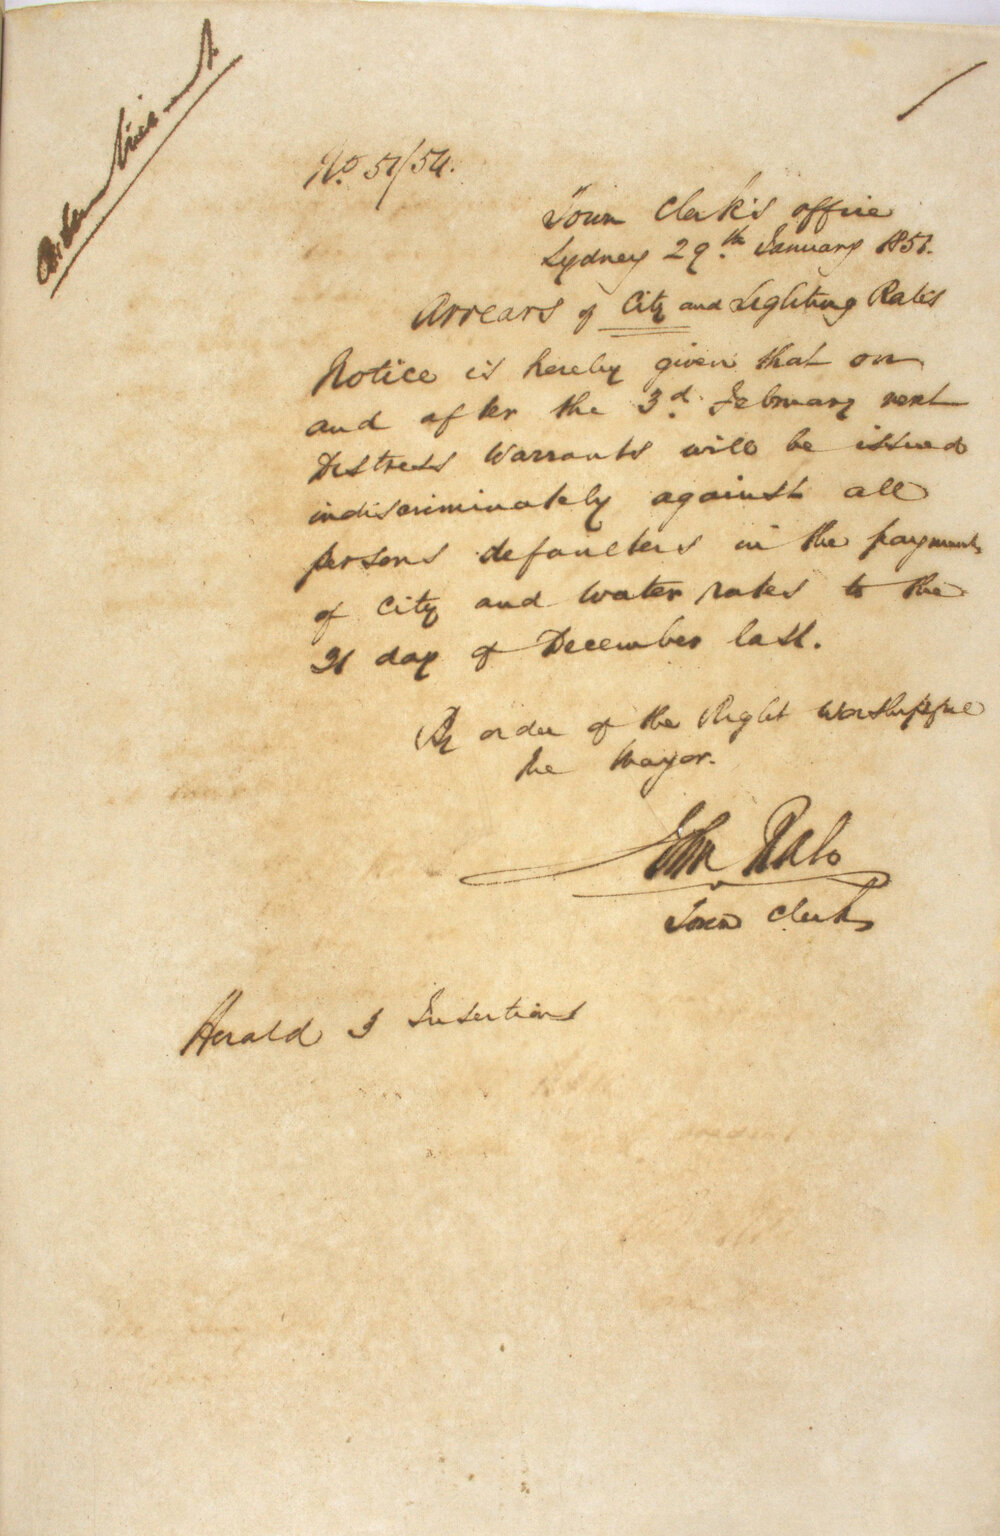 Advertisement
No. 51/54.
Town Clerk's office
Sydney 29th January 1851.
Arrears of City and Lighting Rates
Notice is hereby given that on
and after the 3d. February next
Distress Warrants will be issued
indiscriminately against all
persons defaulters in the payment
of City and Water rates to the
31 day of December last.
By order of the Right Worshipful
the Mayor.
John Rae
Town Clerk
Herald 3 Insertions